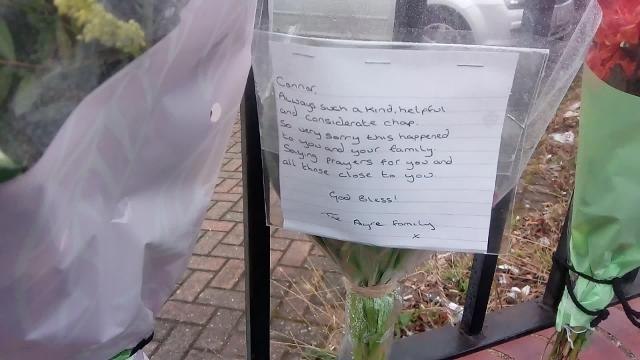 Connor,
Always such a kind, helpful
and considerate chap.
So very sorry this happened
to you and your family.
Saying prayers for you and
all those close to you.
God Bless!
The Ayre family
x